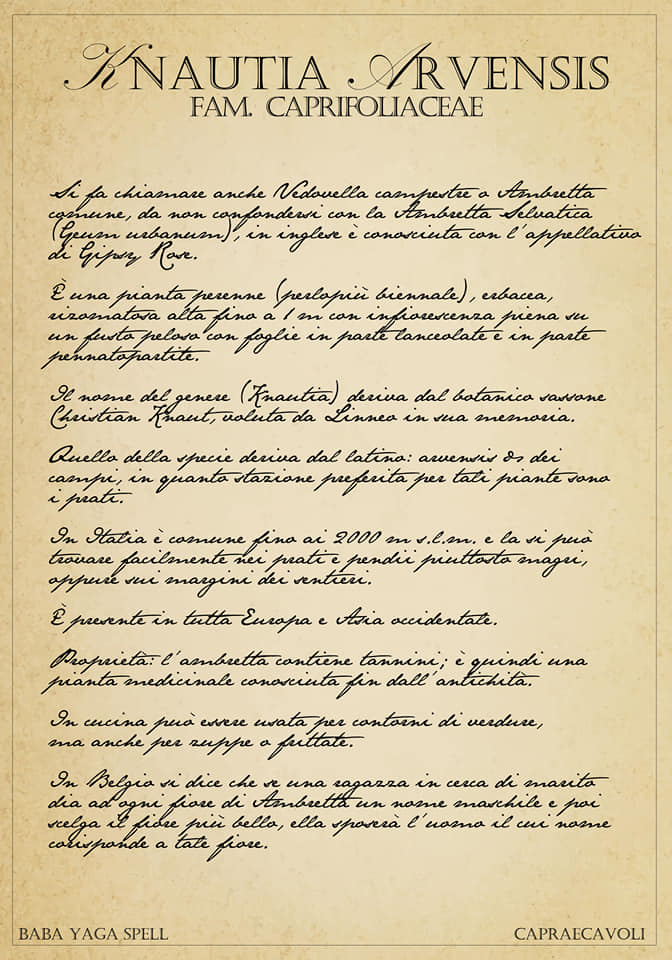 Knautia Arvensis
Fam. Caprifoliaceae
Si fa chiamare anche Vedovella campestre o Ambretta
comune, da non confondersi con la Ambretta Selvatica
(Geum urbanum), in inglese è conosciuta con l'appellativo
di Gipsy Rose.
È una pianta perenne (perlopiù biennale), erbacea,
rizomatosa alta fino a 1 m con infiorescenza piena su
un fusto peloso con foglie in parte lanceolate e in parte
pennatopartite.
Il nome del genere (Knautia) deriva dal botanico sassone
Christian Knaut, voluta da Linneo in sua memoria.
Quello della specie deriva dal latino: arvensis è dei
campi, in quanto stazione preferita per tali piante sono
i prati.
In Italia è comune fino ai 2000 m s.l.m. e la si può
trovare facilmente nei prati e pendii piuttosto magri,
oppure sui margini dei sentieri.
È presente in tutta Europa e Asia occidentale.
Proprietà: l'ambretta contiene tannini; è quindi una
pianta medicinale conosciuta fin dall'antichità.
In cucina può essere usata per contorni di verdure,
ma anche per zuppe o frittate.
In Belgio si dice che se una ragazza in cerca di marito
dia ad ogni fiore di Ambretta un nome maschile e poi
scelga il fiore più bello, ella sposerà l'uomo il cui nome
corisponde a tale fiore.
Baba Yaga Spell
Capraecavoli